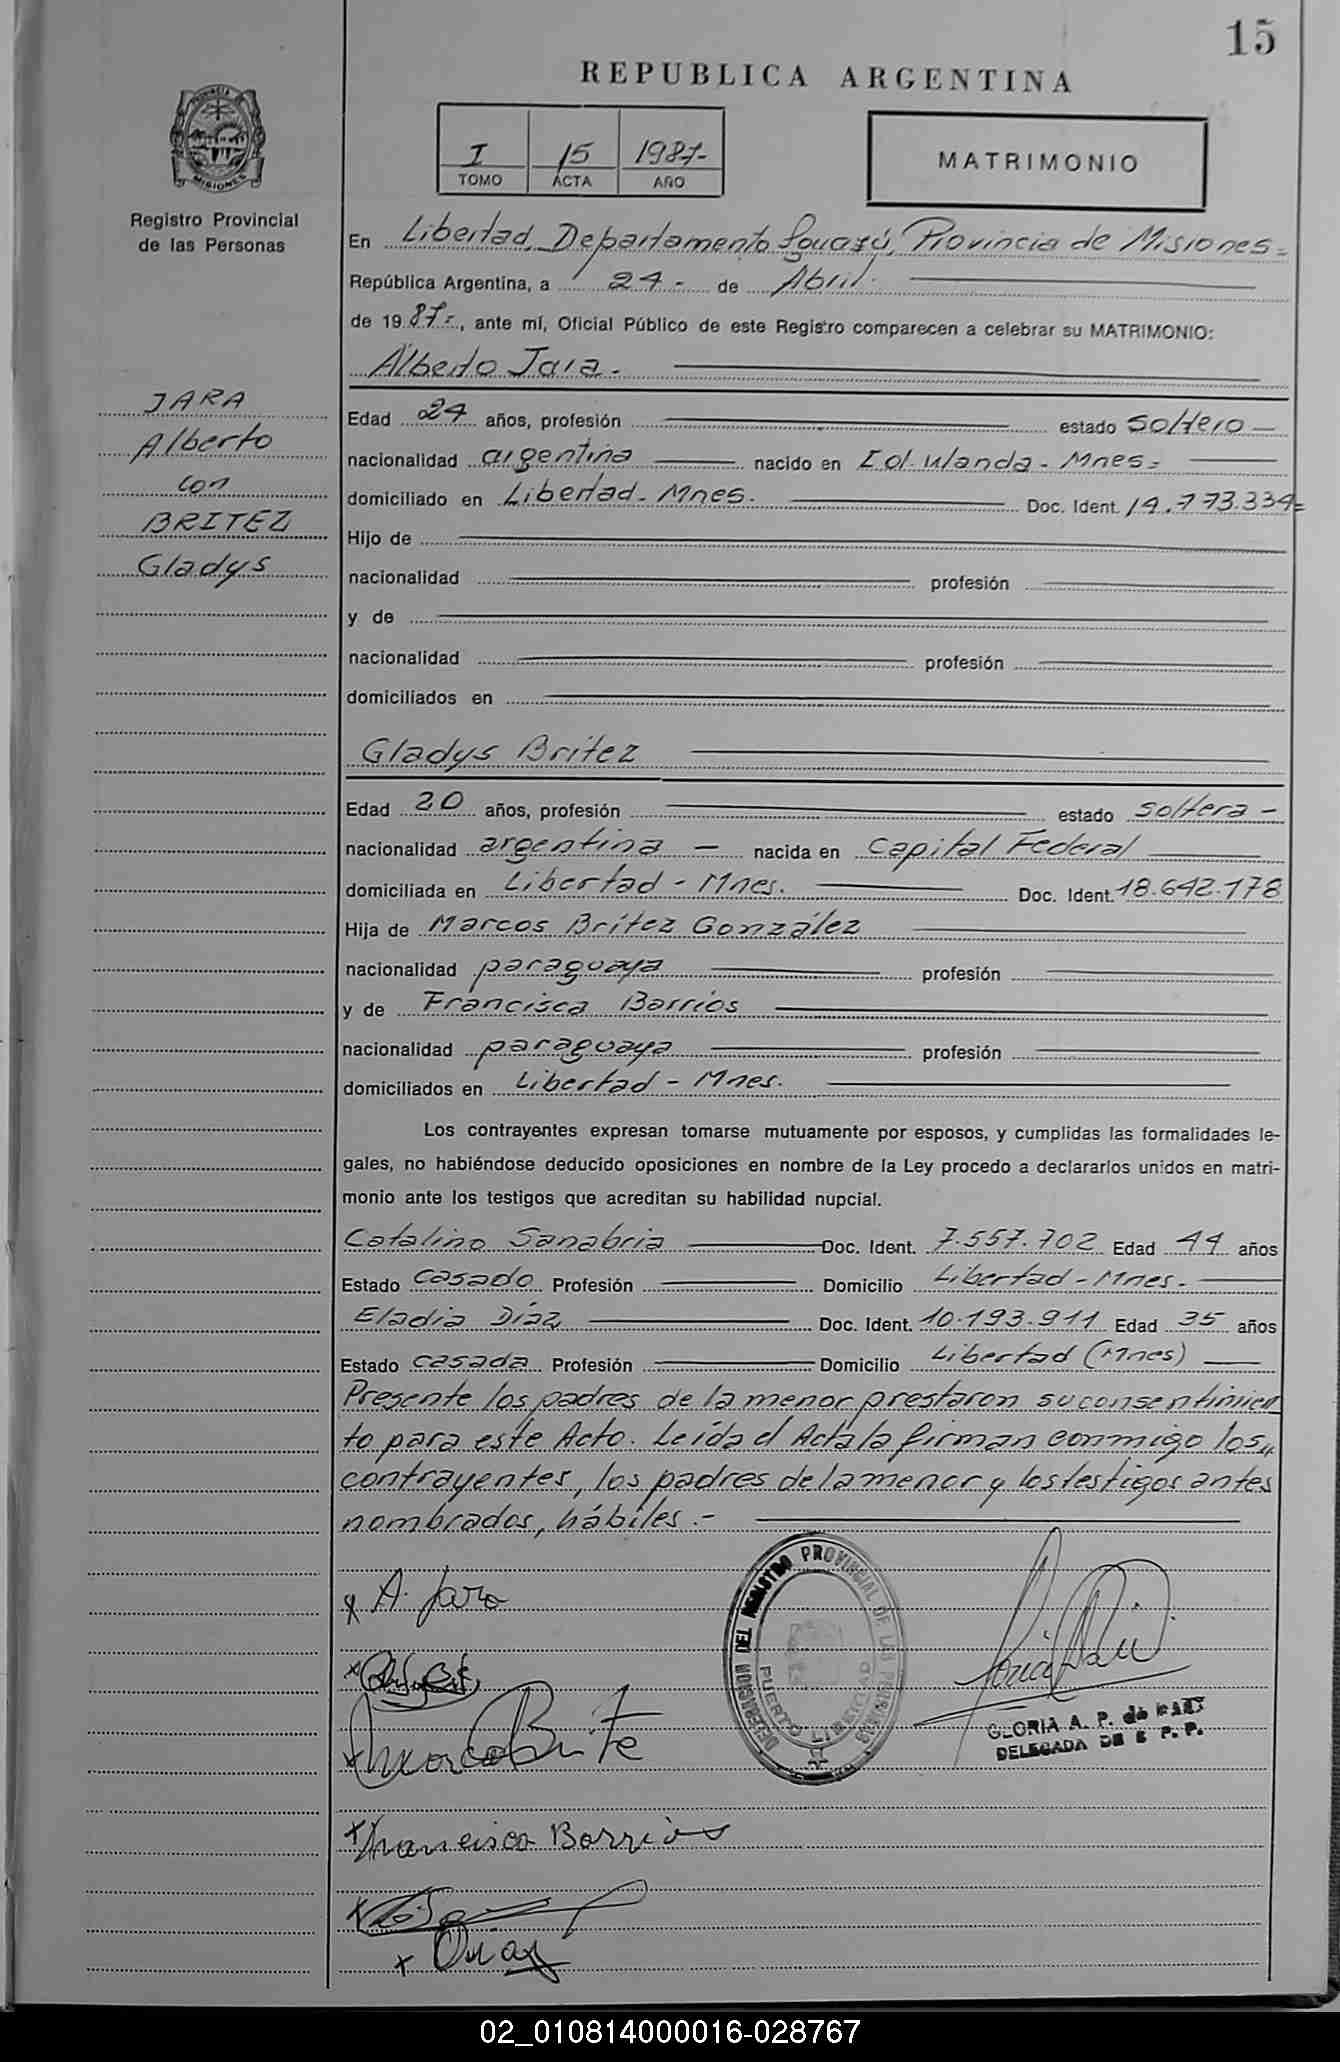 15
REPUBLICA ARGENTINA
I 15 1987-
TOMO ACTA AÑO
MATRIMONIO
PROVINCIA DE MISIONES
Registro Provincial
de las Personas
En Libertad, Departamento Iguazú, Provincia de Misiones=
República Argentina, a 24- de Abril.
de 1987-, ante mí, Oficial Público de este Registro comparecen a celebrar su MATRIMONIO:
Alberto Jara-
JARA
Alberto
con
BRITEZ
Gladys
Edad 24 años, profesión estado soltero
nacionalidad argentina nacido en Col. Wanda- Mnes=
domiciliado en Libertad- Mnes. Doc. Ident. 14.773.334=
Hijo de
nacionalidad profesión
y de
nacionalidad profesión
domiciliados en
Gladys Britez
Edad 20 años, profesión estado soltera-
nacionalidad argentina - nacida en Capital Federal
domiciliada en Libertad - Mnes. Doc. Ident. 18.642.178
Hija de Marcos Brítez González
nacionalidad paraguaya profesión
y de Francisca Barrios
nacionalidad paraguaya profesión
domiciliados en Libertad - Mnes.
Los contrayentes expresan tomarse mutuamente por esposos, y cumplidas las formalidades le-
gales, no habiéndose deducido oposiciones en nombre de la Ley procedo a declararlos unidos en matri-
monio ante los testigos que acreditan su habilidad nupcial.
Catalino Sanabria Doc. Ident. 7.557.702 Edad 44 años
Estado casado Profesión Domicilio Libertad - Mnes.-
Eladia Díaz Doc. Ident. 10.193.911 Edad 35 años
Estado casada Profesión Domicilio Libertad (Mnes)
Presente los padres de la menor prestaron su consentimien
to para este Acto. Leída el Acta la firman conmigo los,,
contrayentes, los padres de la menor y los testigos antes
nombrados, hábiles.-
x A. Jara
DELEGACION DEL REGISTRO PROVINCIAL DE LAS PERSONAS
PUERTO LIBERTAD
GLORIA A. P. de
DELEGADA DE R. P. P.
x Marcos Brite
x Francisca Barrios
x Díaz
02_010814000016-028767